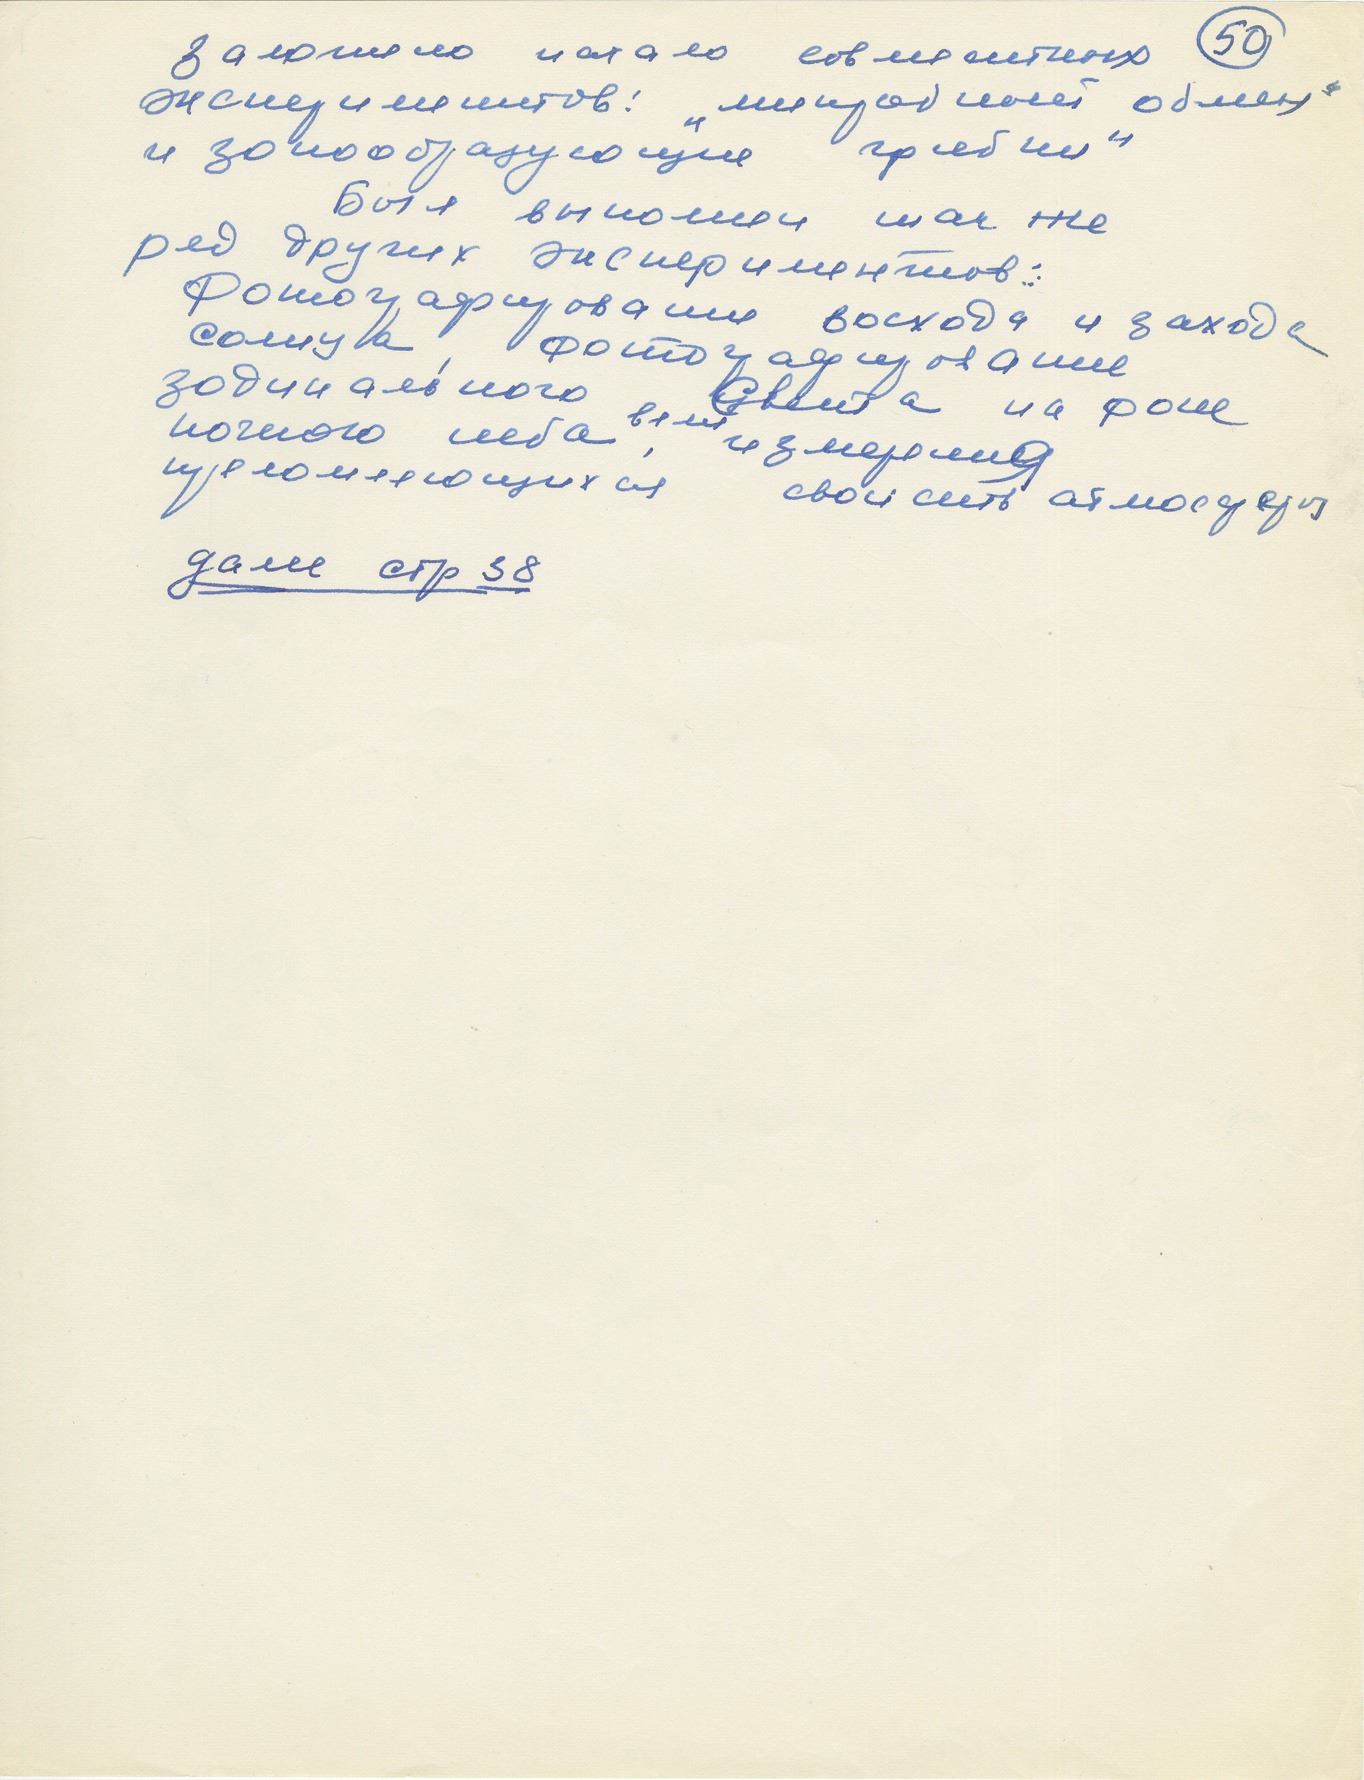 50
заложено начало совместных
экспериментов: „микробный обмен"
и „зонообразующие грибки"
Был выполнен так же
ряд других экспериментов:
Фотографирование восхода и захода
солнца, фотографирование
зодиакального света на фоне
ночного неба, измерения
преломляющихся свойств атмосферы
дале стр 38